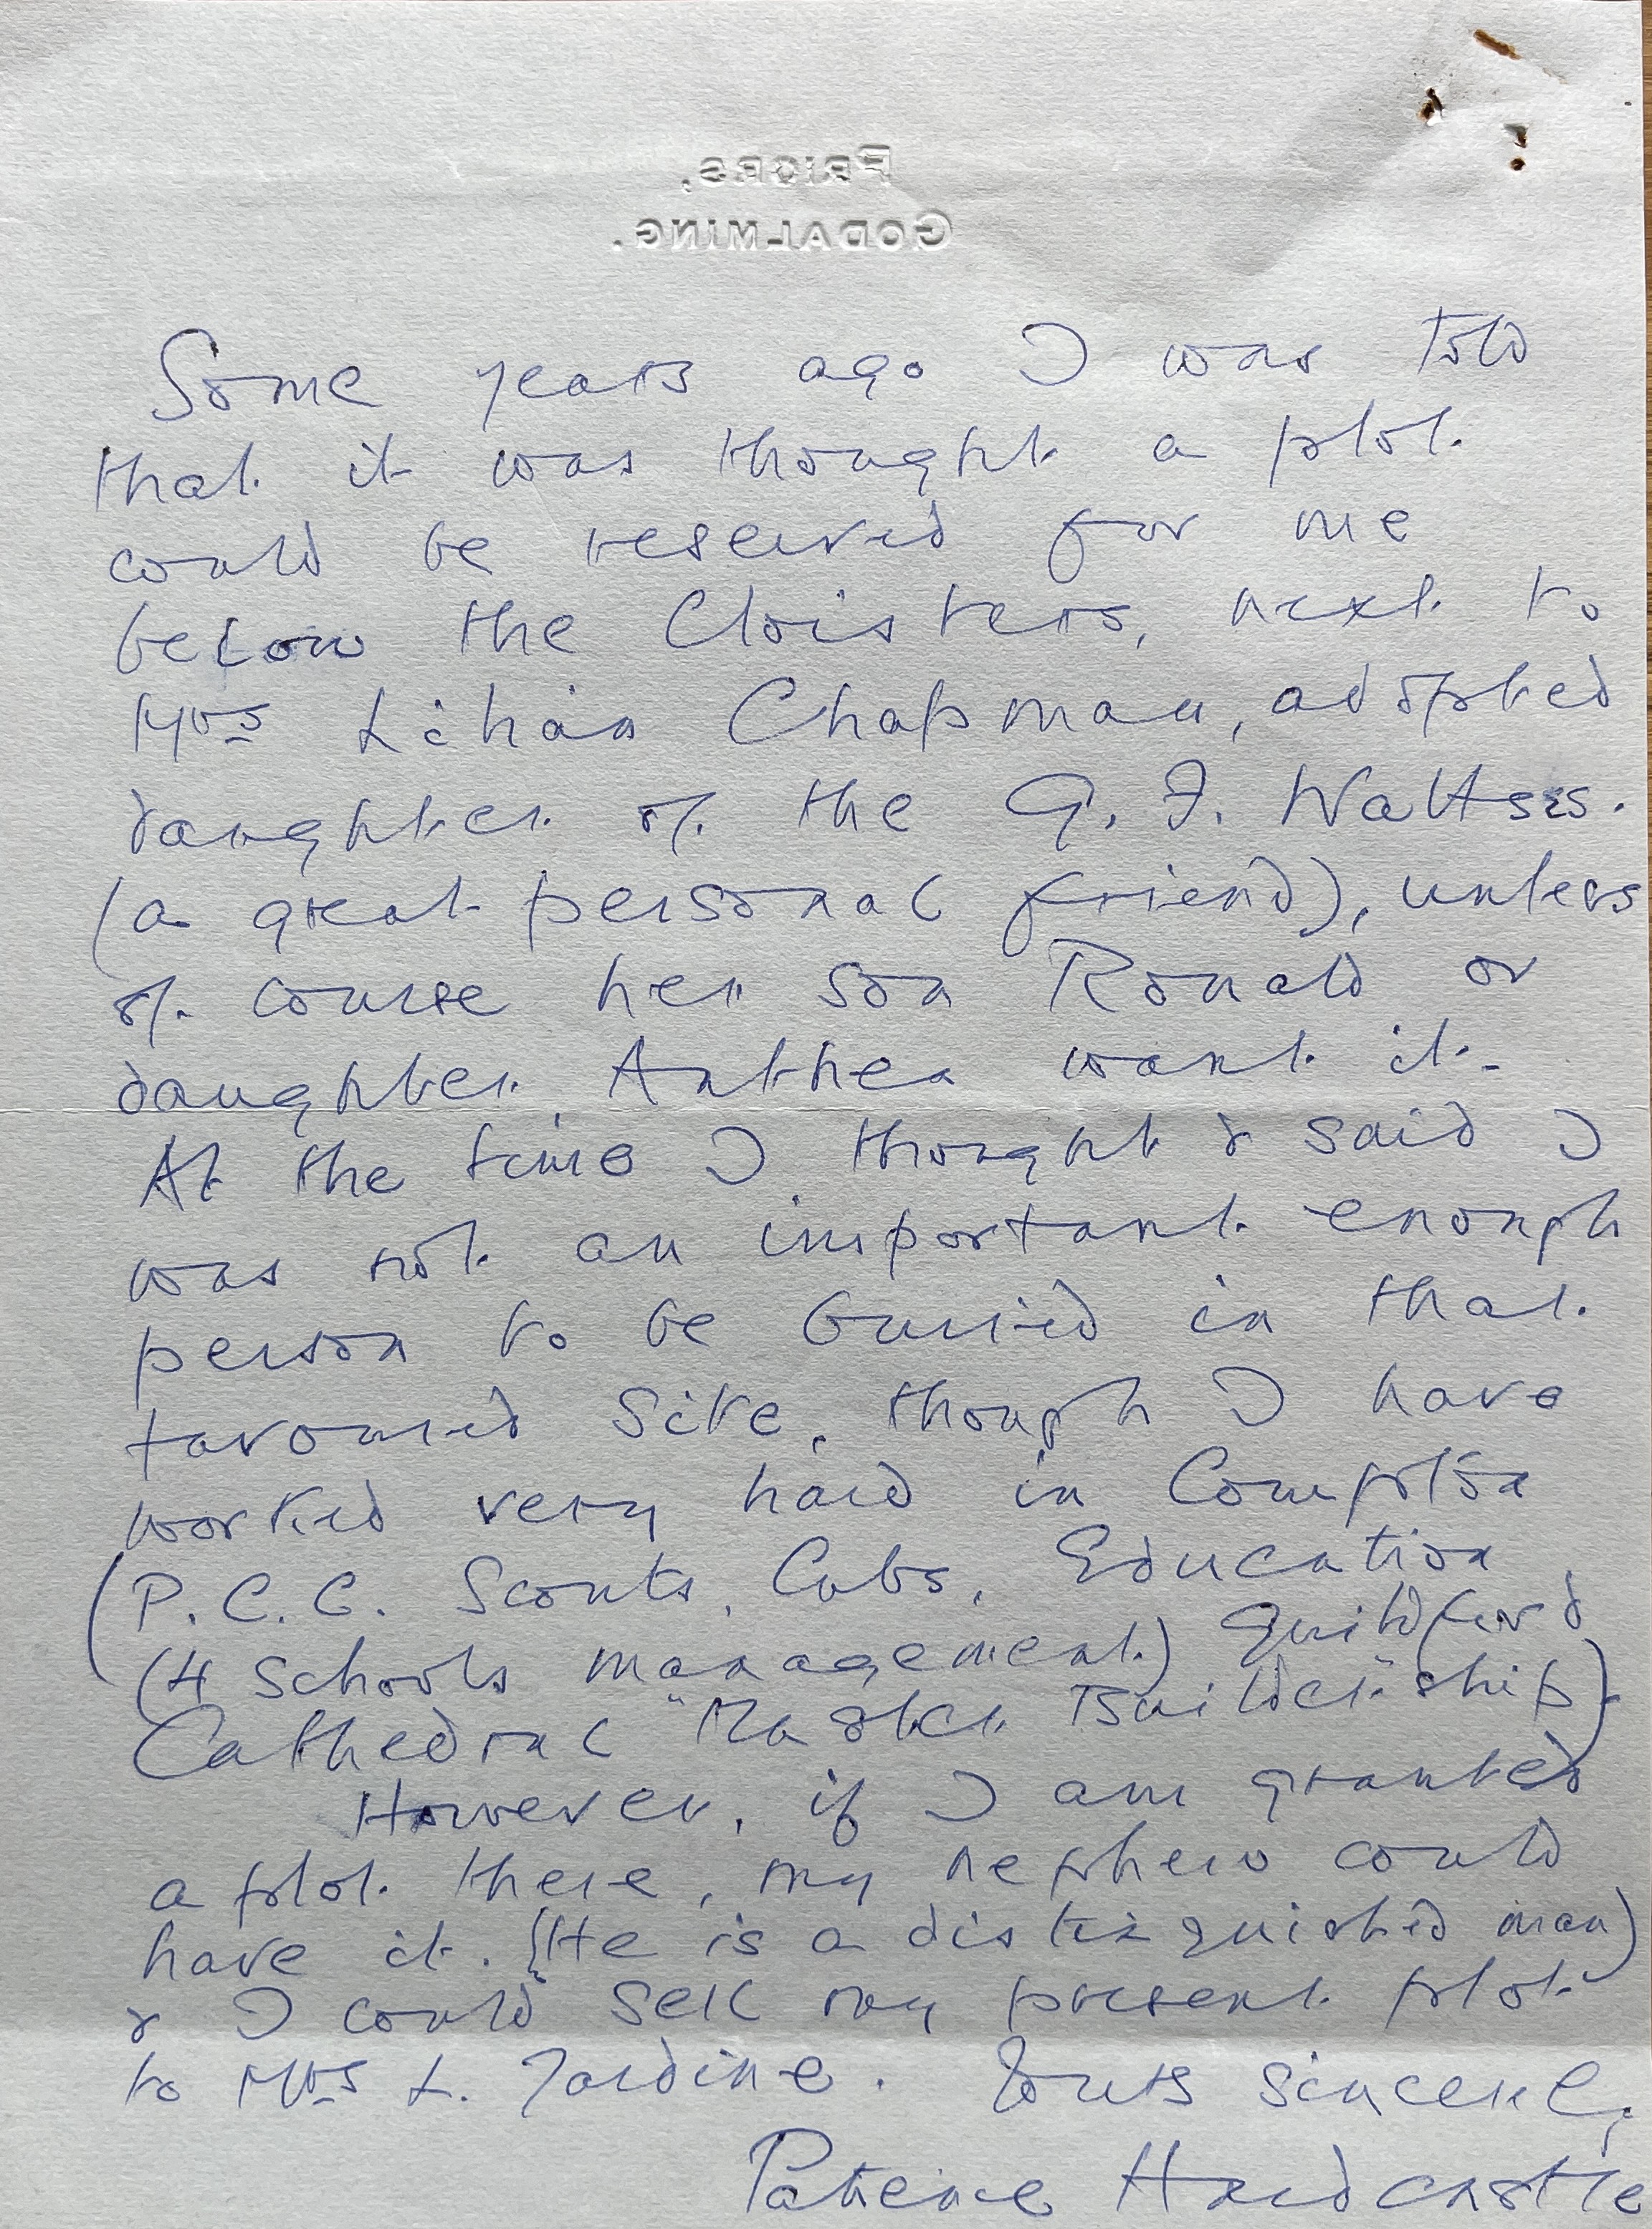 PRIORS,
GODALMING.
Some years ago I was told
that it was thought a plot
could be reserved for me
below the Cloisters, next to
Mrs Lilian Chapman, adopted
daughter of the G. F. Wattses.
(a great personal friend), unless
of course her son Ronald or
daughter Anthea want it.
At the time I thought & said I
was not an important enough
person to be buried in that
favoured site, though I have
worked very hard in Compton
(P.C.C. Scouts, Cubs, Education
(4 Schools management) Guildford
Cathedral "Master Builder" ship)
However, if I am granted
a plot there, my nephew could
have it. (He is a distinguished man)
& I could sell my present plot
to Mrs L. Jardine. Yours sincerely
Patience Hardcastle